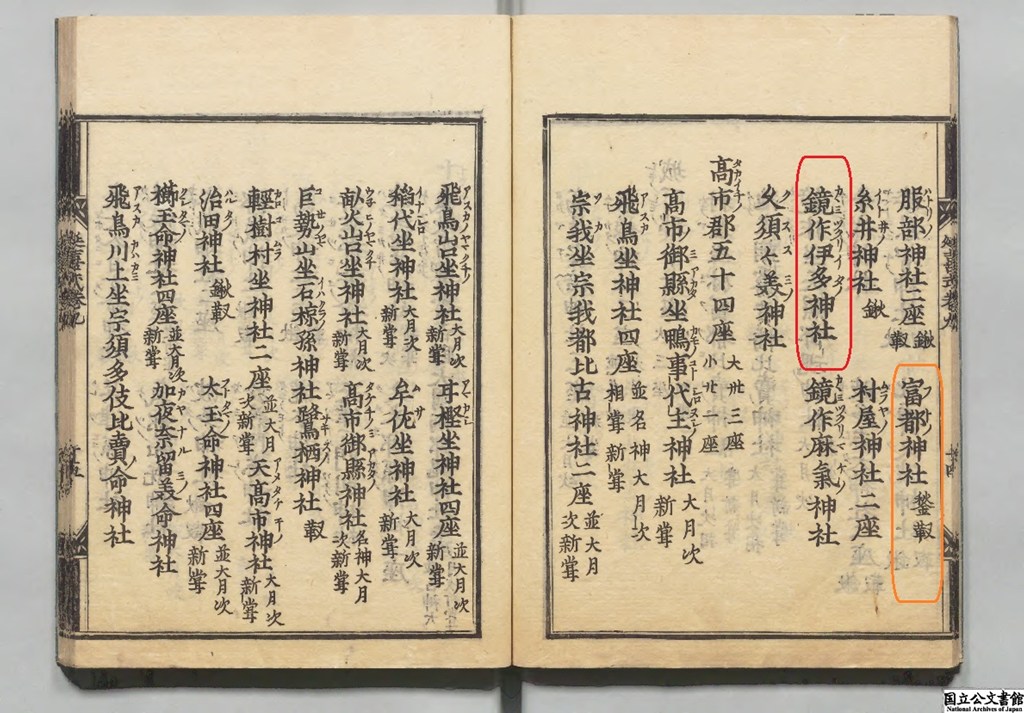 服部神社二座 鍬靫 富都神社 鍬靫
糸井神社 鍬 村屋神社二座
鏡作伊多神社 鏡作麻氣神社
久須々美神社
高市郡五十四座 大卅三座 小廿一座
高市御縣坐鴨事代主神社 大月次新甞
飛鳥坐神社四座 並名神大月次相甞新甞
宗我坐宗我都比古神社二座 並大月次新甞
飛鳥山口坐神社 大月次新甞 耳樫坐神社四座 並大月次新甞
稲代坐神社 大月次新甞 牟佐坐神社 大月次新甞
畝火山口坐神社 大月次新甞 高市御縣神社 名神大月次新甞
巨勢山坐石椋孫神社 鷺栖神社 靫
輕樹村坐神社二座 並大月次新甞 天高市神社 大月次新甞
治田神社 鍬靫 太玉命神社四座 並大月次新甞
櫛玉命神社四座 並大月次新甞 加夜奈留美命神社
飛鳥川上坐宇須多伎比賣命神社
国立公文書館
National Archives of Japan